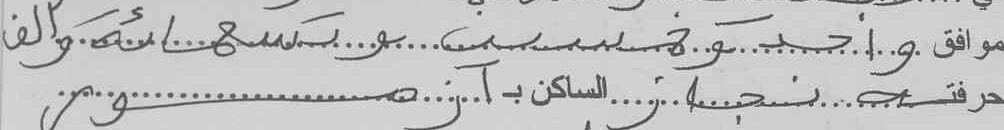 موافق واحد وخمسين وتسعمائة وألف
حرفته نجار الساكن ب